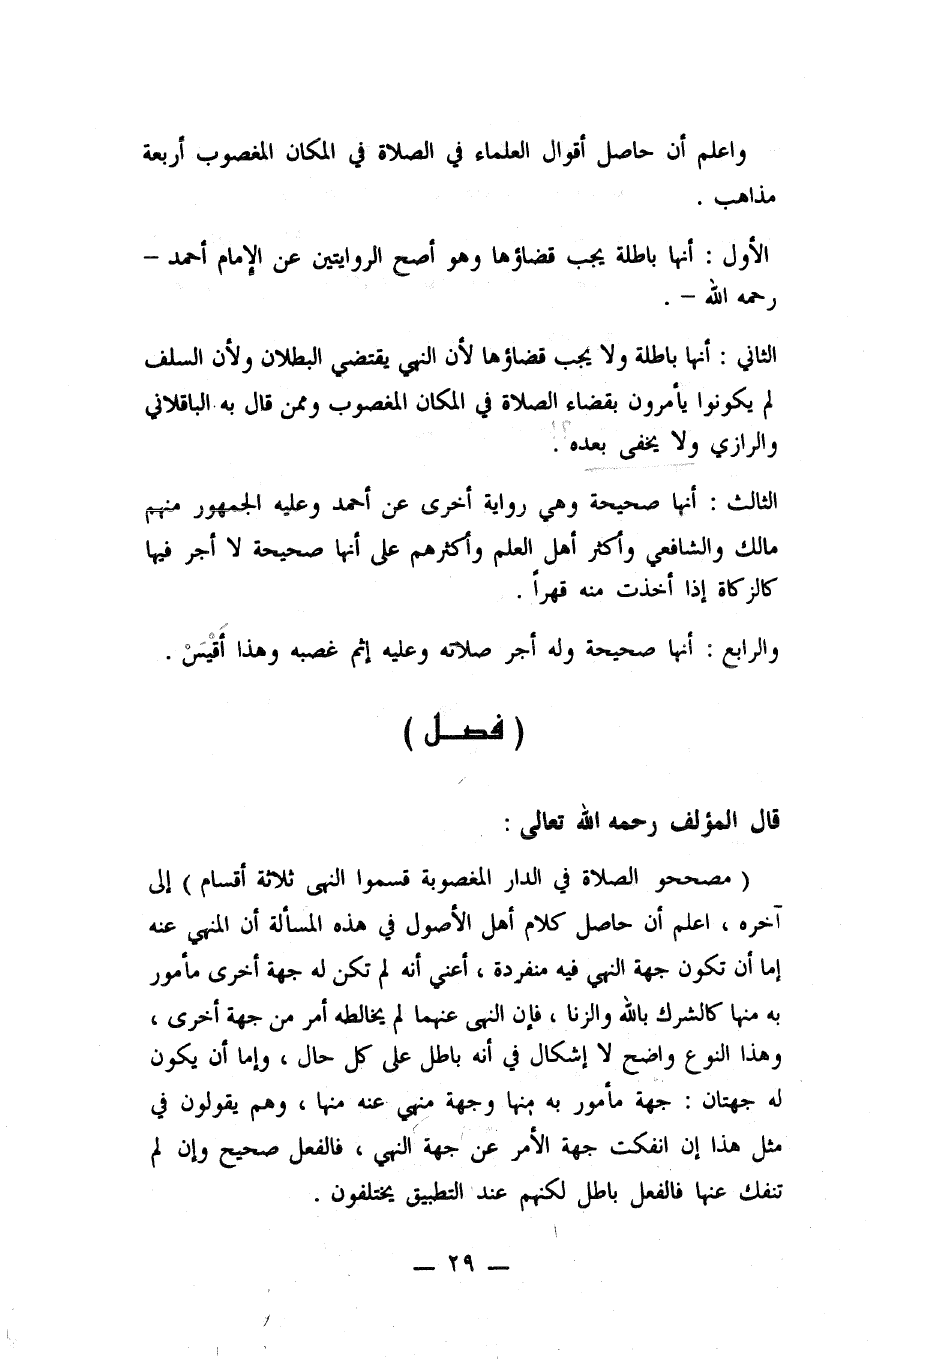 واعلم أن حاصل أقوال العلماء في الصلاة في المكان المغصوب أربعة
مذاهب .
الأول : أنها باطلة يجب قضاؤها وهو أصح الروايتين عن الإمام أحمد –
رحمه الله – .
الثاني : أنها باطلة ولا يجب قضاؤها لأن النهي يقتضي البطلان ولأن السلف
لم يكونوا يأمرون بقضاء الصلاة في المكان المغصوب وممن قال به الباقلاني
والرازي ولا يخفى بعده .
الثالث : أنها صحيحة وهي رواية أخرى عن أحمد وعليه الجمهور منهم
مالك والشافعي وأكثر أهل العلم وأكثرهم على أنها صحيحة لا أجر فيها
كالزكاة إذا أخذت منه قهراً .
والرابع : أنها صحيحة وله أجر صلاته وعليه إثم غصبه وهذا أَقْيَسْ .
( فصــل )
قال المؤلف رحمه الله تعالى :
( مصححو الصلاة في الدار المغصوبة قسموا النهى ثلاثة أقسام ) إلى
آخره ، اعلم أن حاصل كلام أهل الأصول في هذه المسألة أن المنهي عنه
إما أن تكون جهة النهي فيه منفردة ، أعني أنه لم تكن له جهة أخرى مأمور
به منها كالشرك بالله والزنا ، فإن النهى عنهما لم يخالطه أمر من جهة أخرى ،
وهذا النوع واضح لا إشكال في أنه باطل على كل حال ، وإما أن يكون
له جهتان : جهة مأمور به منها وجهة منهي عنه منها ، وهم يقولون في
مثل هذا إن انفكت جهة الأمر عن جهة النهي ، فالفعل صحيح وإن لم
تنفك عنها فالفعل باطل لكنهم عند التطبيق يختلفون .
— ٢٩ —